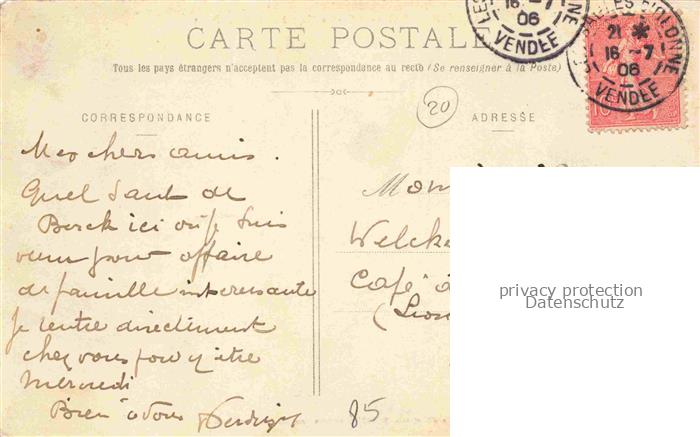 CARTE POSTALE
Tous les pays étrangers n'acceptent pas la correspondance au recto (Se renseigner à la Poste)
CORRESPONDANCE
20
ADRESSE
16 -7
06
VENDÉE
21 *
16 -7
06
VENDÉE
10
Mes chers amis.
Quel saut de
Berck ici où je suis
venu pour affaire
de famille intéressante
Je rentre directement
chez vous pour y être
mercredi
Bien à vous
Mon
Welcke
Café
85
privacy protection
Datenschutz